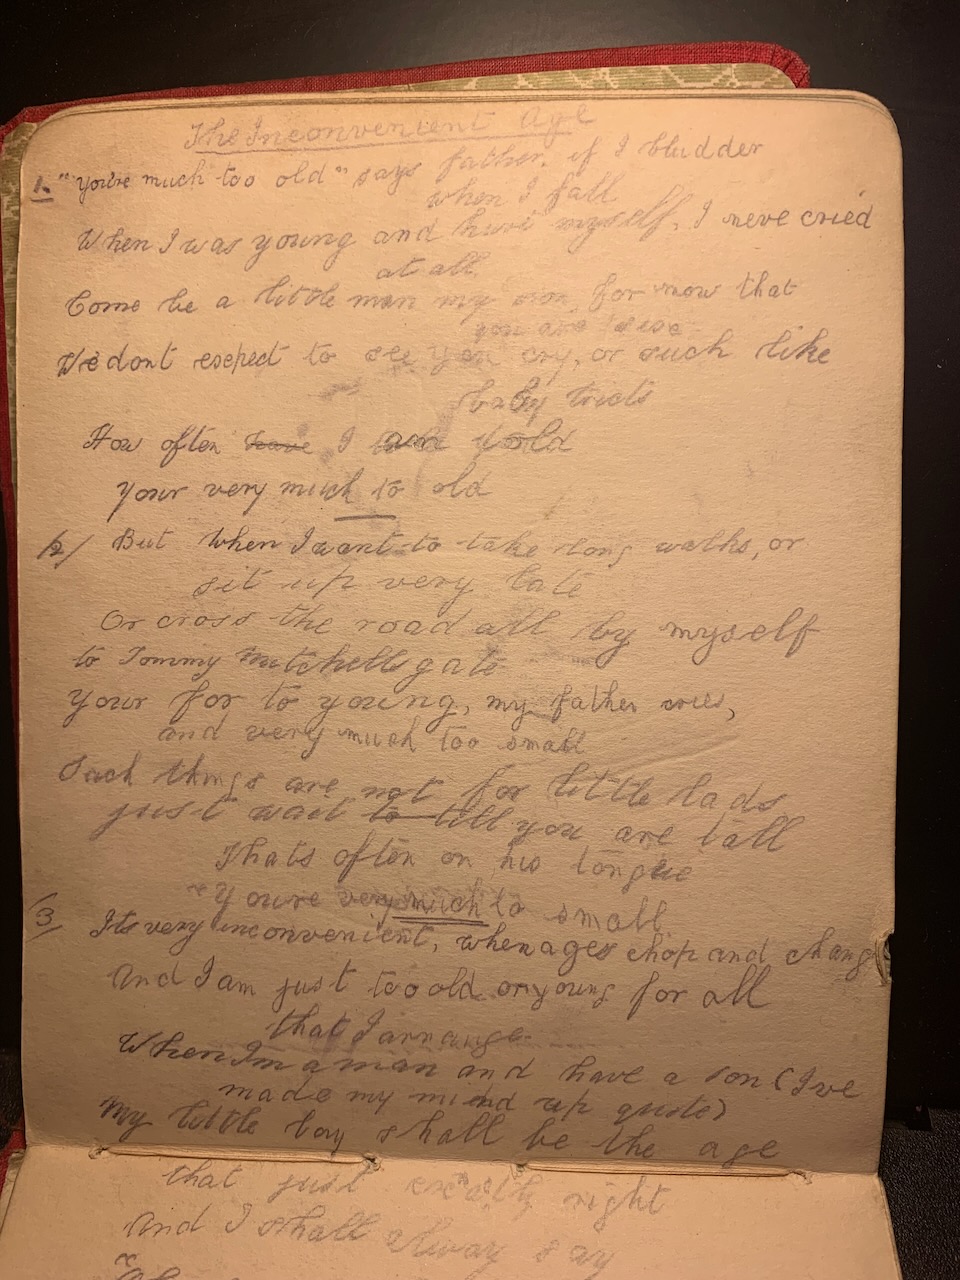 The Inconvenient Age
1. "You're much too old" says father, if I bludder
when I fall
When I was young and hurt myself, I neve cried
at all.
Come be a little man my son, for now that
you are
We dont esepect to see you cry, or such like
baby tricts
How often have I am told
Your very much to old
2/ But when I want to take long walks, or
sit up very late
Or cross the road all by myself
to Tommy Mitchells gate
Your for to young, my father cries,
and very much too small
Such things are not for little lads
just wait to till you are tall
Thats often on his tongue
"Youre very much to small
3/ Its very inconvenient, when ages chop and chang
And I am just too old or young for all
that I arrange.
When Im a man and have a son (Ive
made my mind up quite)
My little boy shall be the age
that just exactly right
And I shall alway say